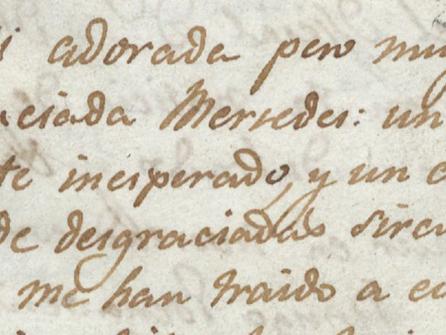 i adorada pero muy
aciada Mersedes: un
te inesperado, y un c
de desgraciadas sircu
me han traido a e